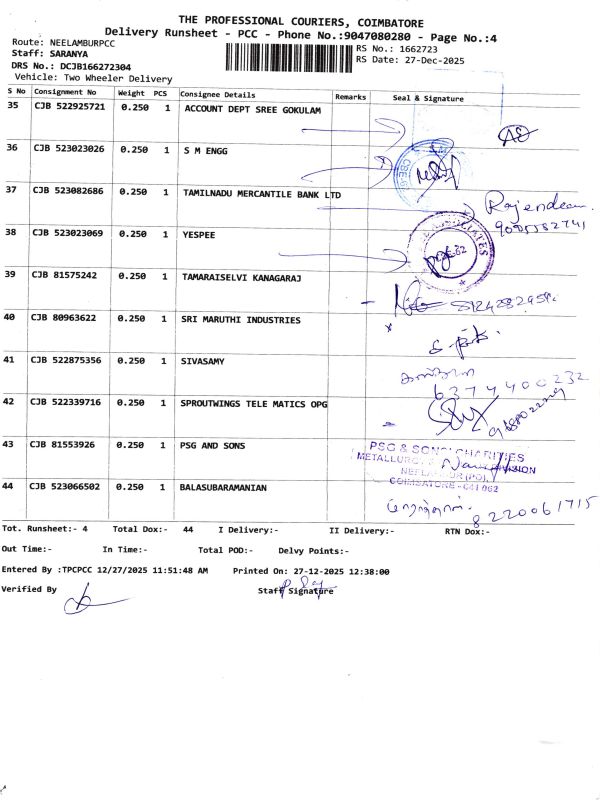 THE PROFESSIONAL COURIERS, COIMBATORE
Delivery Runsheet - PCC - Phone No.:9047080280 - Page No.:4
Route: NEELAMBURPCC
Staff: SARANYA
DRS No.: DCJB166272304
Vehicle: Two Wheeler Delivery
RS No.: 1662723
RS Date: 27-Dec-2025
S No Consignment No Weight PCS Consignee Details Remarks Seal & Signature
35 CJB 522925721 0.250 1 ACCOUNT DEPT SREE GOKULAM
36 CJB 523023026 0.250 1 S M ENGG
37 CJB 523082686 0.250 1 TAMILNADU MERCANTILE BANK LTD
Rajendean
38 CJB 523023069 0.250 1 YESPEE
39 CJB 81575242 0.250 1 TAMARAISELVI KANAGARAJ
40 CJB 80963622 0.250 1 SRI MARUTHI INDUSTRIES
41 CJB 522875356 0.250 1 SIVASAMY
6374400232
42 CJB 522339716 0.250 1 SPROUTWINGS TELE MATICS OPG
43 CJB 81553926 0.250 1 PSG AND SONS
PSG & SONS' CHARITIES
COIMBATORE - 641 062
44 CJB 523066502 0.250 1 BALASUBARAMANIAN
8220061715
Tot. Runsheet:- 4 Total Dox:- 44 I Delivery:- II Delivery:- RTN Dox:-
Out Time:- In Time:- Total POD:- Delvy Points:-
Entered By :TPCPCC 12/27/2025 11:51:48 AM Printed On: 27-12-2025 12:38:00
Verified By Staff Signature